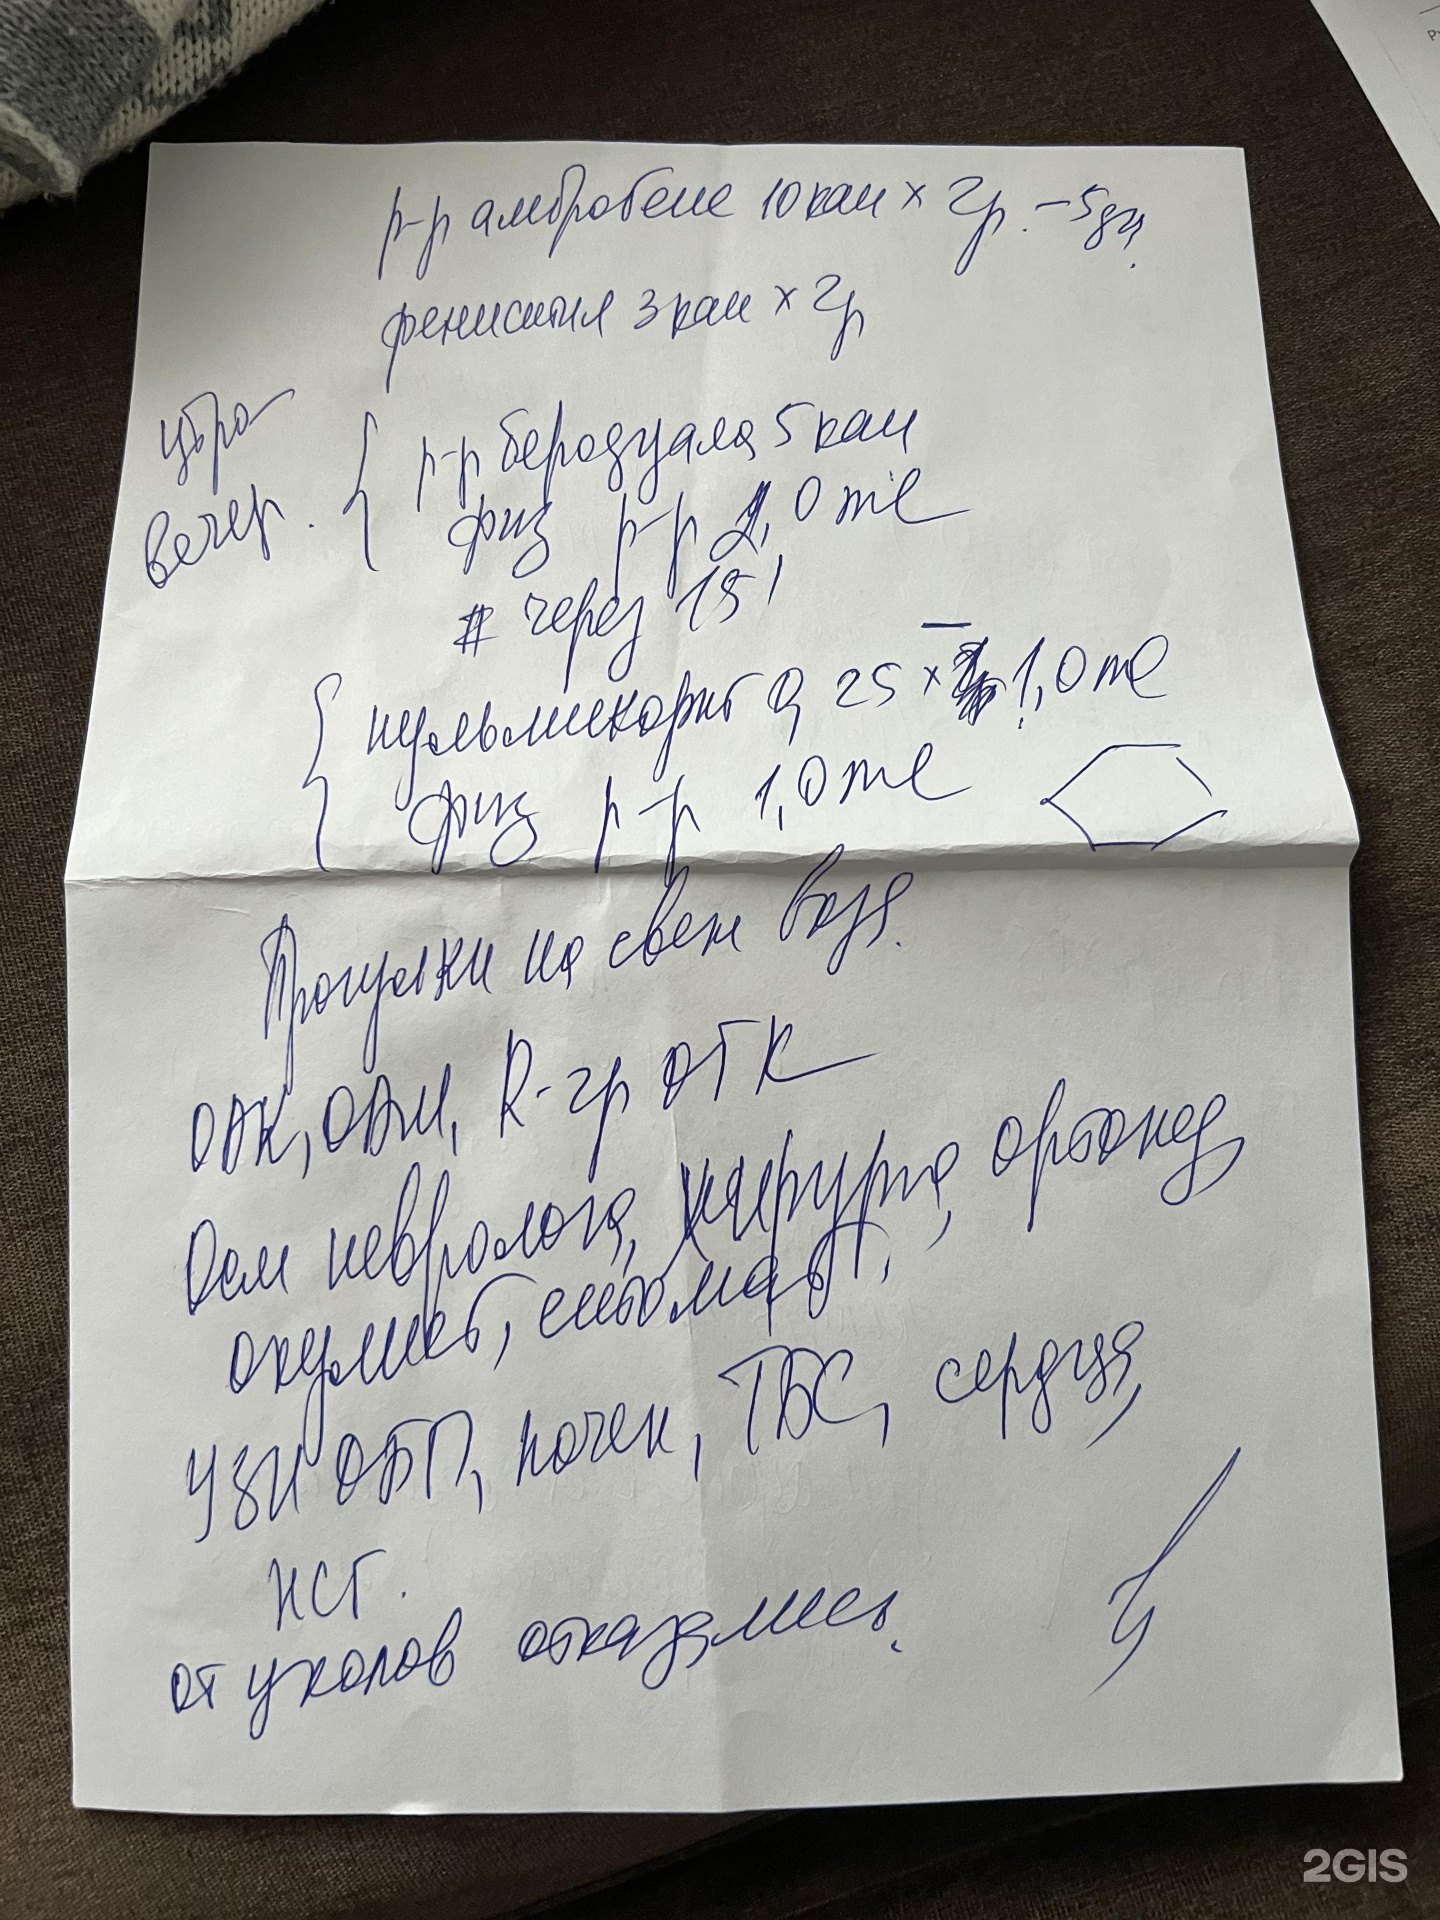 р-р амбробене 10 кап × 2р. – 5 дн.
фенистил 3 кап × 2р
утро
вечер.
р-р беродуала 5 кап
физ р-р 1,0 мл
# через 15'
пульмикорт 0,25 × 1,0 мл
физ р-р 1,0 мл
Прогулки на свеж возд.
ОАК, ОАМ, R-гр ОГК
Осм невролога, хирурга, ортопед
окулист, стомат,
УЗИ ОБП, почек, ТБС, сердца,
НСГ.
от уколов отказались.
2GIS